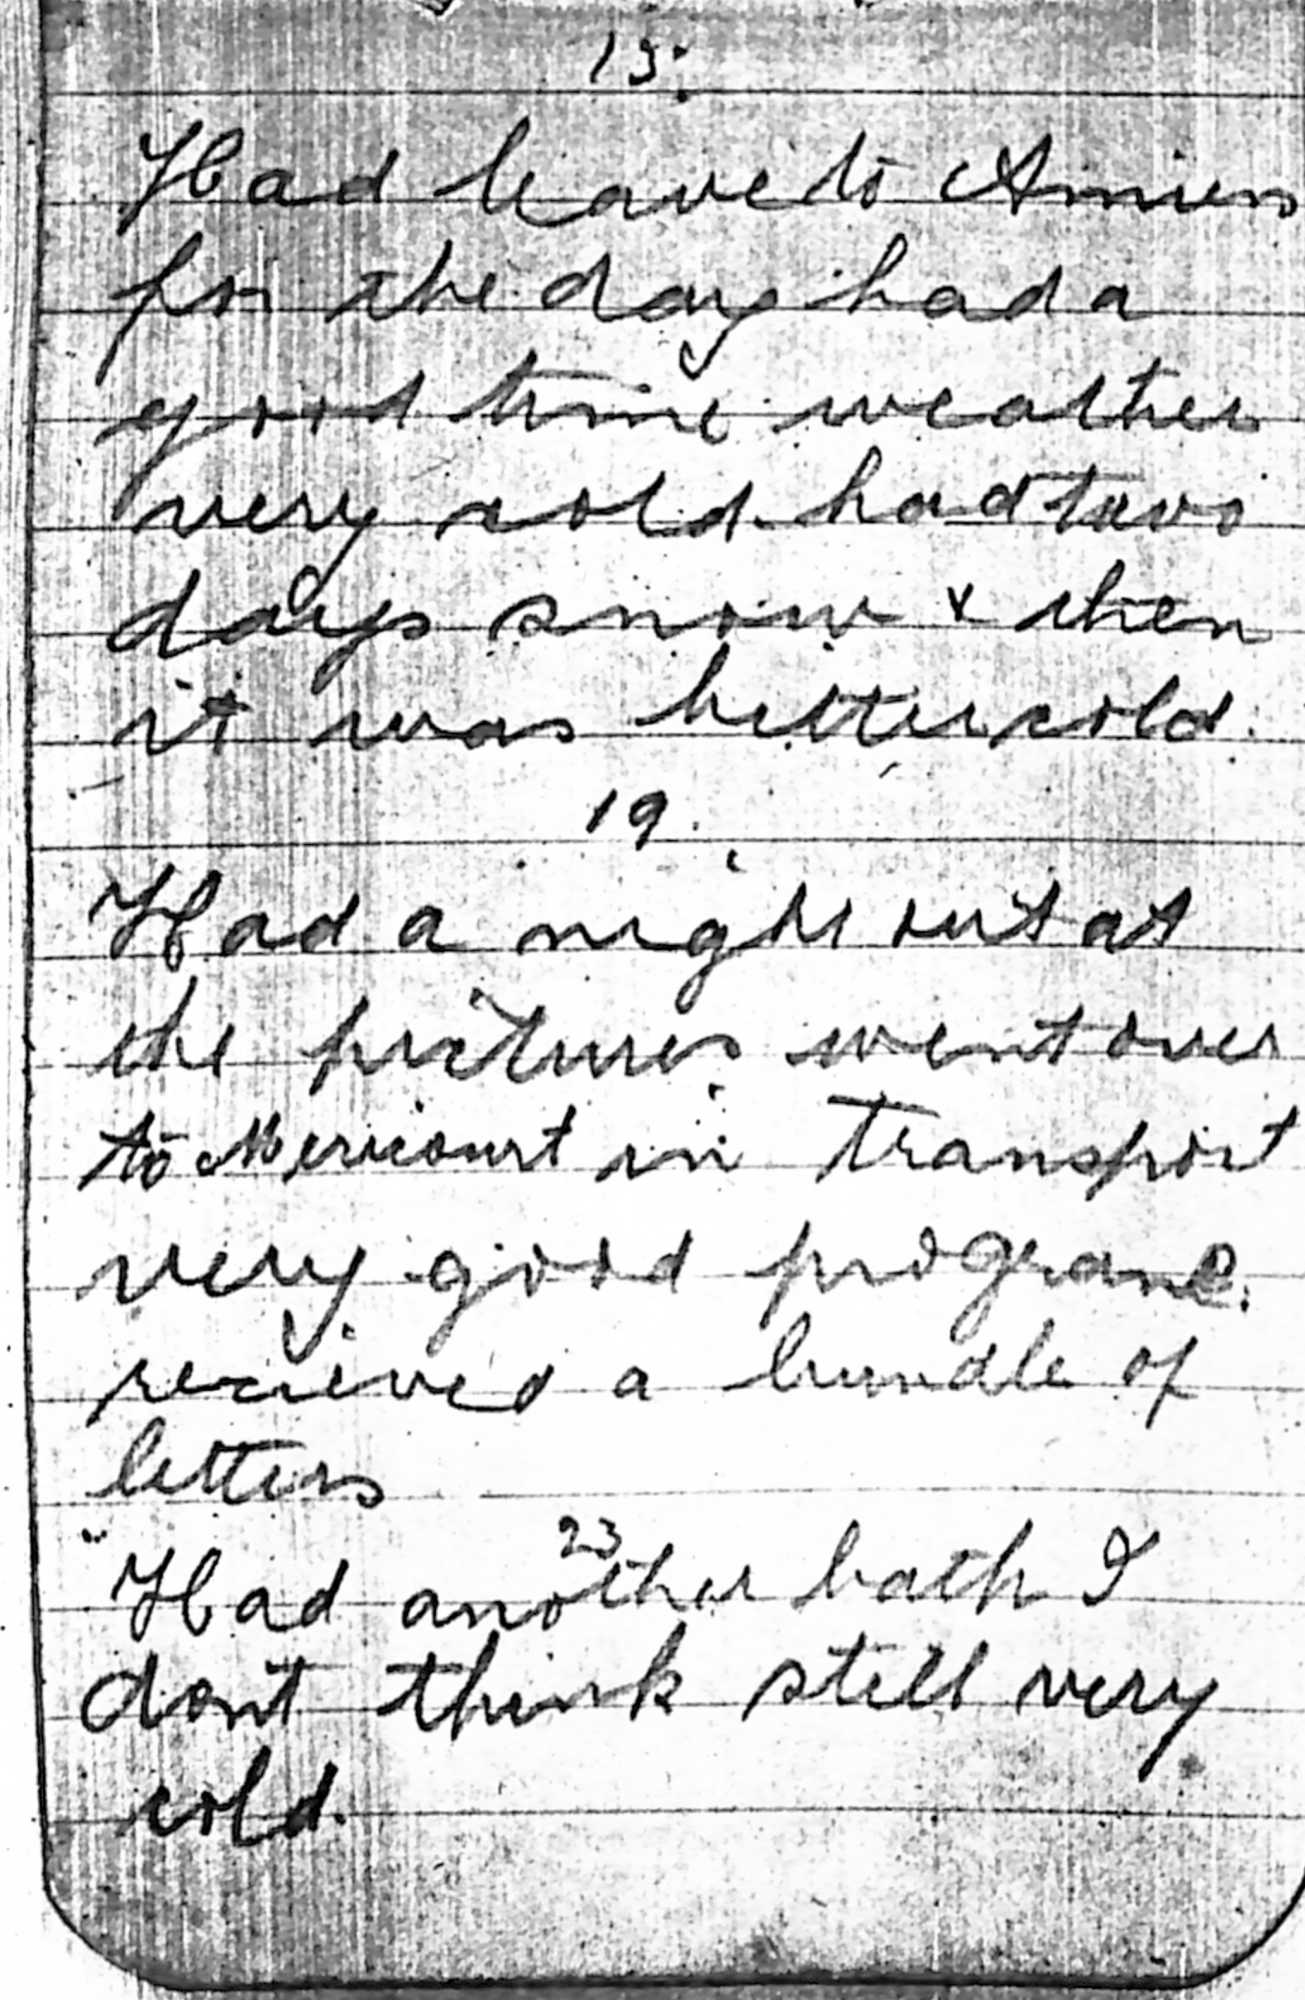 15.
Had leave to Amiens
for the day had a
good time weather
very cold. had two
days snow & then
it was bitter cold.
19.
Had a night out at
the pictures went over
to Mericourt in transport
very good programe.
recieved a bundle of
letters
23
Had another bath I
dont think still very
cold.